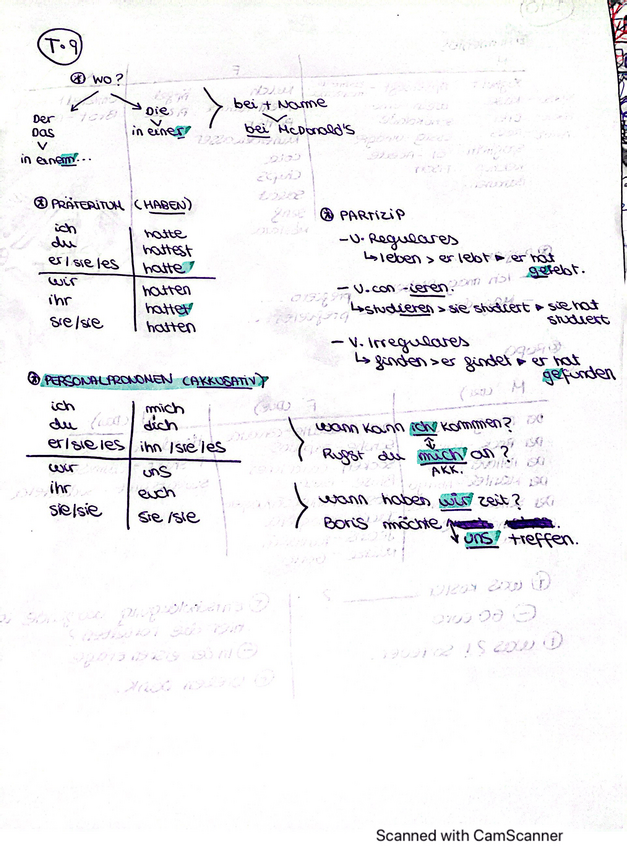 T.9
⊛ WO?
Der
Das
in einem...
Die
in einer
bei + Name
bei McDonald's
⊛ PRÄTERITUM (HABEN)
ich hatte
du hattest
er/sie/es hatte
wir hatten
ihr hattet
sie/sie hatten
⊛ PARTIZIP
- V. Regulares
↳ leben > er lebt ▸ er hat
gelebt.
- V. con -ieren.
↳ studieren > sie studiert ▸ sie hat
studiert
- V. Irregulares
↳ finden > er findet ▸ er hat
gefunden
⊛ PERSONALPRONOMEN (AKKUSATIV)
ich mich
du dich
er/sie/es ihn/sie/es
wir uns
ihr euch
sie/sie sie/sie
Wann kann ich kommen?
Rufst du mich an?
AKK.
Wann haben wir zeit?
Boris möchte
uns treffen.
Scanned with CamScanner